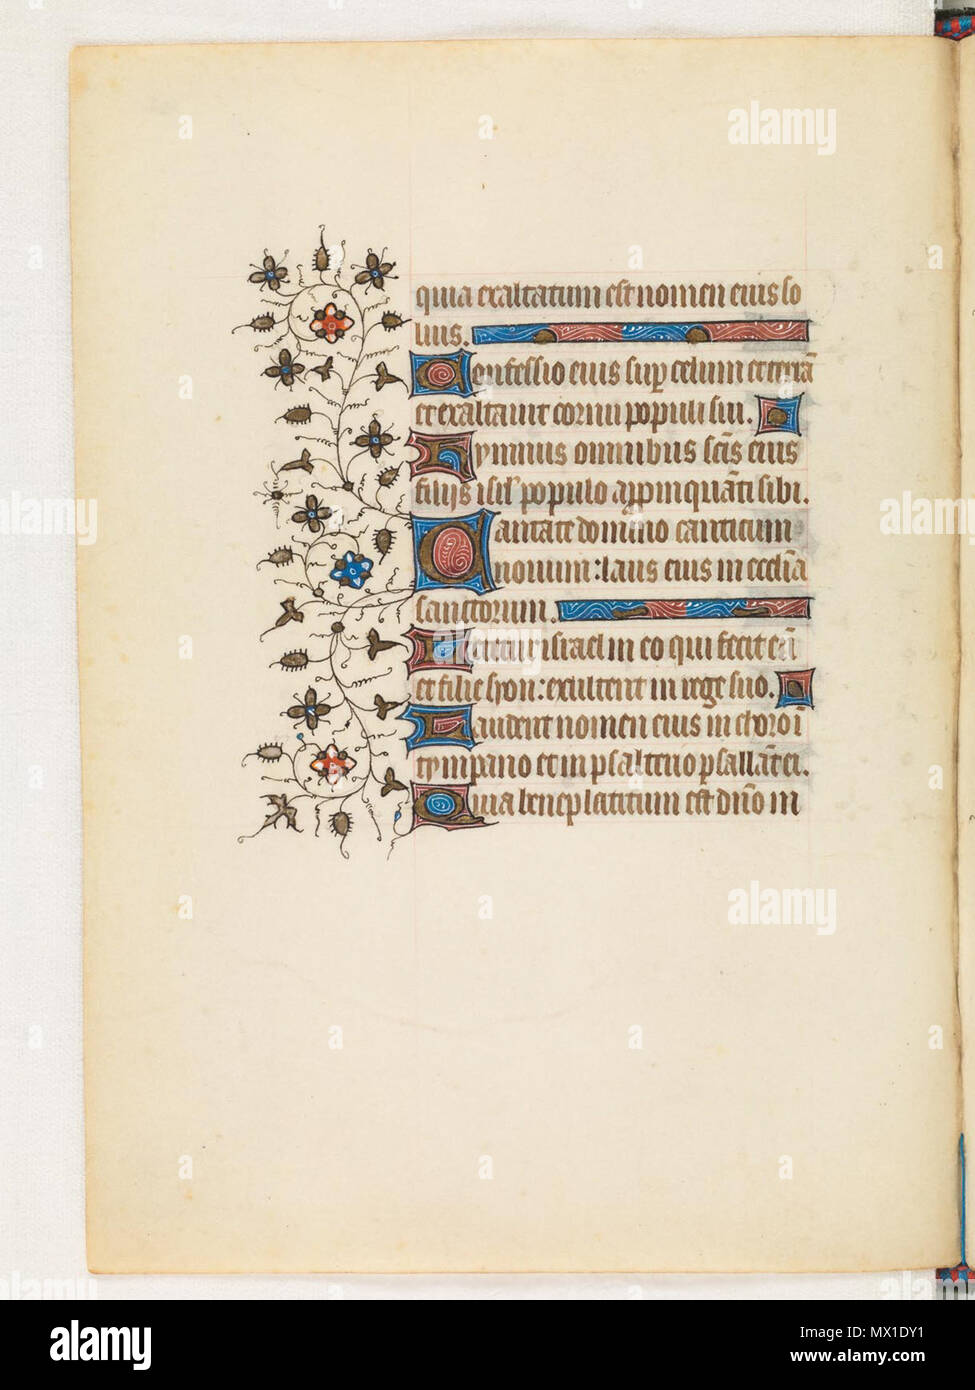 quia exaltatum est nomen eius so
lius.
Confessio eius sup celum et terrā
et exaltauit cornu populi sui.
Hymnus omnibus scīs eius
filijs isrl' populo appinquāti sibi.
Cantate domino canticum
nouum: laus eius in ecclīa
sanctorum.
Letetur israel in eo qui fecit eū
et filie syon: exultent in rege suo.
Laudent nomen eius in choro ī
tympano et in psalterio psallāt ei.
Quia beneplacitum est dn̄o in
alamy
alamy
alamy
alamy
alamy
Image ID: MX1DY1
www.alamy.com